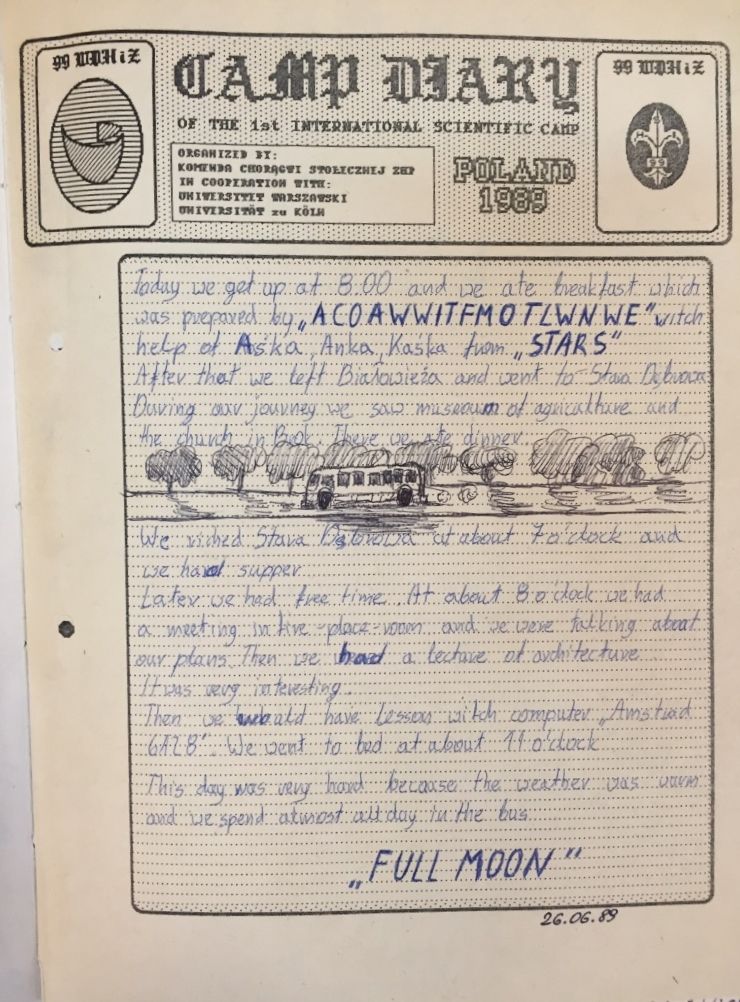 99 WDHiZ
CAMP DIARY
OF THE 1st INTERNATIONAL SCIENTIFIC CAMP
ORGANIZED BY:
KOMENDA CHORĄGWI STOŁECZNEJ ZHP
IN COOPERATION WITH:
UNIWERSYTET WARSZAWSKI
UNIVERSITÄT zu KÖLN
POLAND
1989
99 WDHiZ
99
Today we get up at 8.00 and we ate breakfast which
was prepared by „ACOAWWITFMOTLWNWE" witch
help of Aśka, Anka, Kaśka from „STARS"
After that we left Białowieża and went to Stara Dąbrowa
During our journey we saw museoum of agriculture and
the church in Brok. There we ate dinner
We riched Stara Dąbrowa at about 7 o'clock and
we had supper
Later we had free time. At about 8 o'clock we had
a meeting in fire-place-room and we were talking about
our plans. Then we had a lecture of architecture
It was very interesting.
Then we would have lesson witch computer „Amstrad
6128". We went to bed at about 11 o'clock
This day was very hard because the weather was warm
and we spend almost all day in the bus
„FULL MOON"
26.06.89